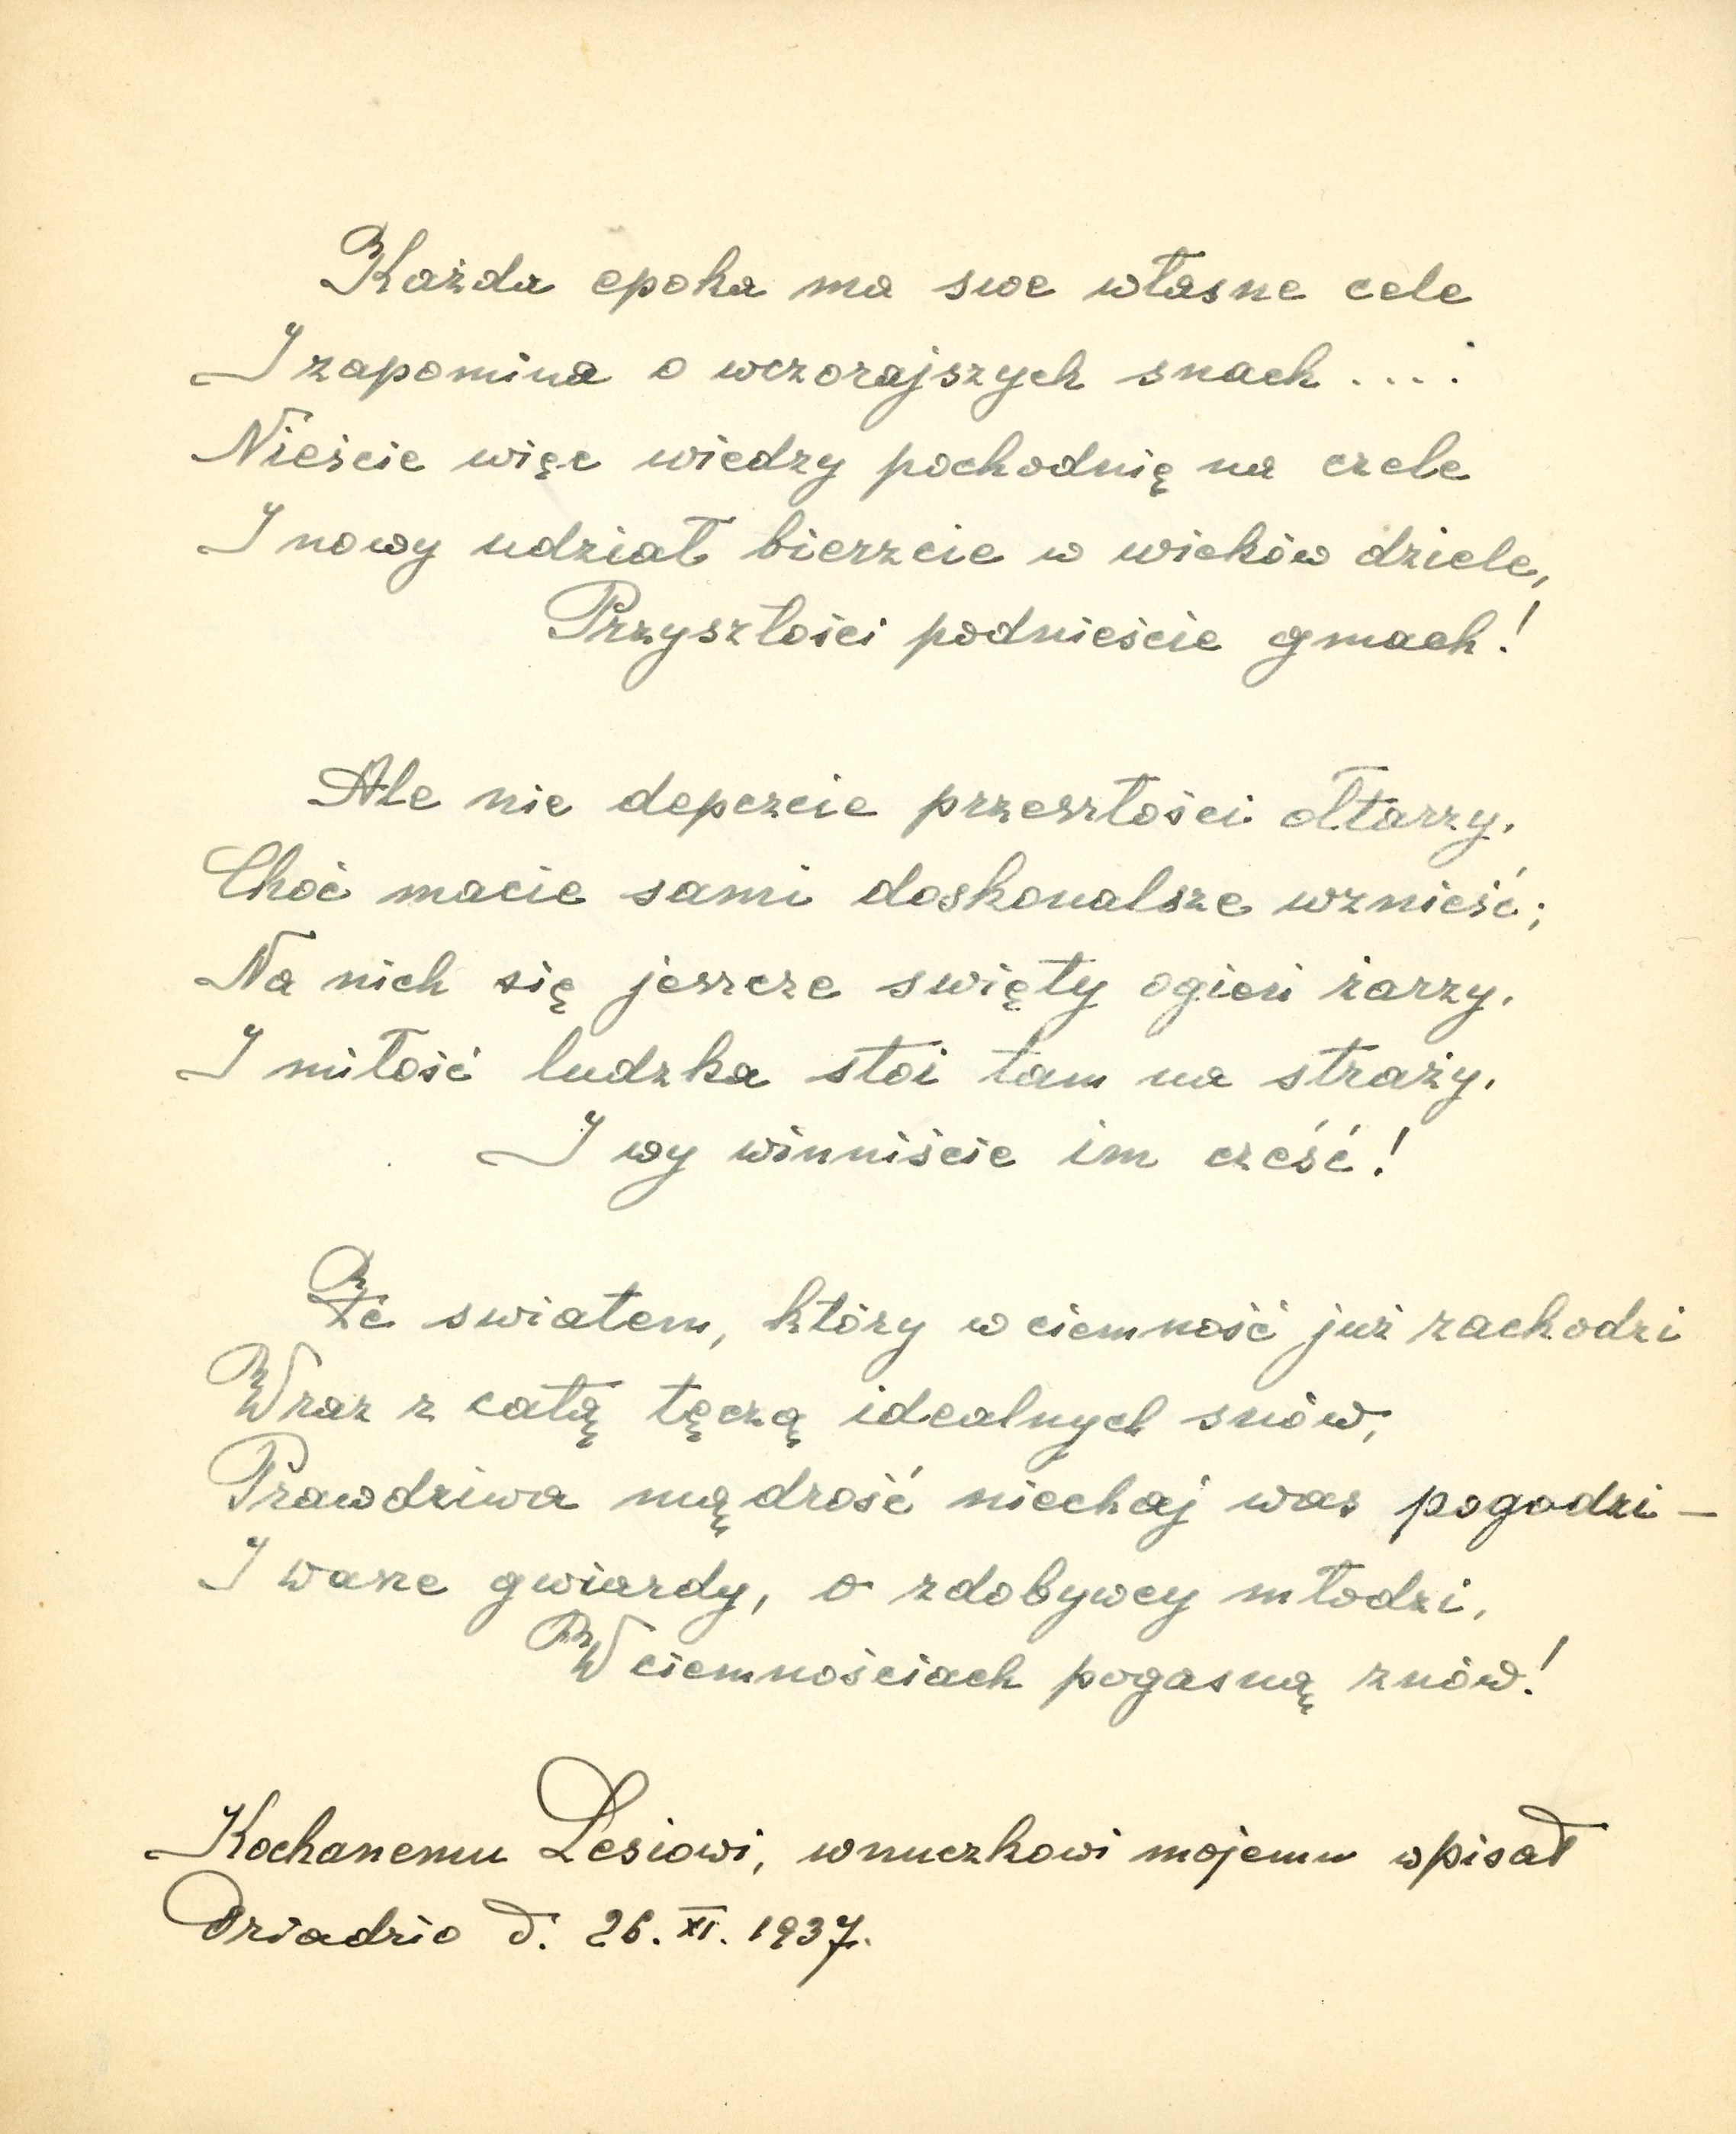 Każda epoka ma swe własne cele
I zapomina o wczorajszych snach....
Nieście więc wiedzy pochodnię na czele
I nowy udział bierzcie w wieków dziele,
Przyszłości podnieście gmach!
Ale nie depczcie przeszłości ołtarzy,
Choć macie sami doskonalsze wznieść;
Na nich się jeszcze swięty ogień żarzy,
I miłość ludzka stoi tam na straży,
I wy winniście im cześć!
Ze swiatem, który w ciemność już zachodzi
Wraz z całą tęczą idealnych snów,
Prawdziwa mądrość niechaj was pogodzi –
I wasze gwiazdy, o zdobywcy młodzi,
W ciemnościach pogasną znów!
Kochanemu Lesiowi, wnuczkowi mojemu wpisał
Dziadzio d. 26. XI. 1937.